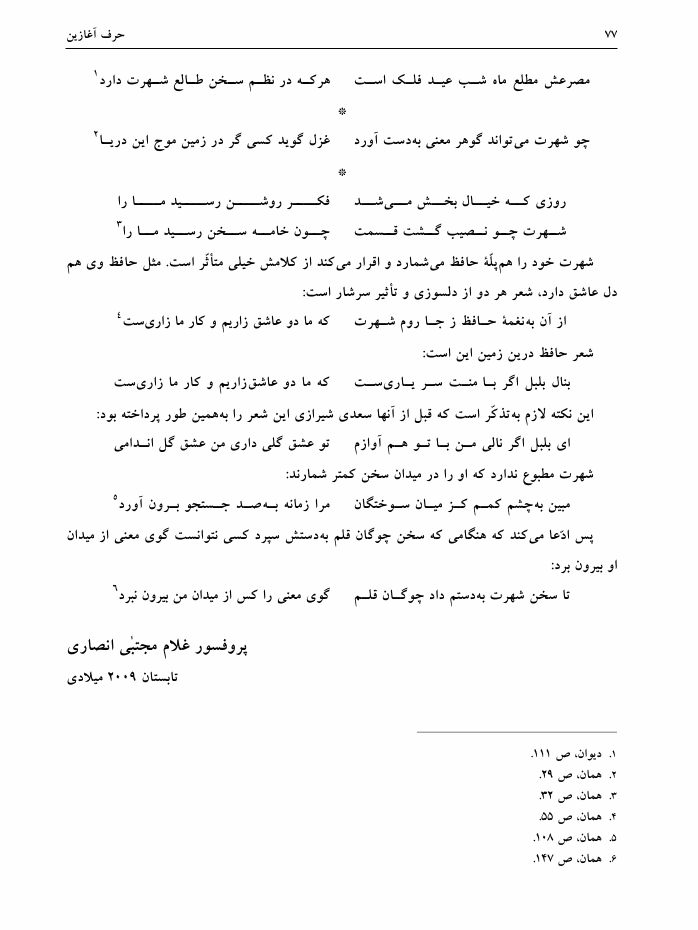 ۷۷ حرف آغازین
مصرعش مطلع ماه شب عید فلک است هرکه در نظم سخن طالع شهرت دارد۱
*
چو شهرت می‌تواند گوهر معنی به‌دست آورد غزل گوید کسی گر در زمین موج این دریا۲
*
روزی که خیال بخش می‌شد فکر روشن رسید ما را
شهرت چو نصیب گشت قسمت چون خامه سخن رسید ما را۳
شهرت خود را هم‌پلّهٔ حافظ می‌شمارد و اقرار می‌کند از کلامش خیلی متأثّر است. مثل حافظ وی هم
دل عاشق دارد، شعر هر دو از دلسوزی و تأثیر سرشار است:
از آن به‌نغمهٔ حافظ ز جا روم شهرت که ما دو عاشق زاریم و کار ما زاری‌ست۴
شعر حافظ درین زمین این است:
بنال بلبل اگر با منت سر یاری‌ست که ما دو عاشق‌زاریم و کار ما زاری‌ست
این نکته لازم به‌تذکّر است که قبل از آنها سعدی شیرازی این شعر را به‌همین طور پرداخته بود:
ای بلبل اگر نالی من با تو هم آوازم تو عشق گلی داری من عشق گل اندامی
شهرت مطبوع ندارد که او را در میدان سخن کمتر شمارند:
مبین به‌چشم کمم کز میان سوختگان مرا زمانه به‌صد جستجو برون آورد۵
پس ادّعا می‌کند که هنگامی که سخن چوگان قلم به‌دستش سپرد کسی نتوانست گوی معنی از میدان
او بیرون برد:
تا سخن شهرت به‌دستم داد چوگان قلم گوی معنی را کس از میدان من بیرون نبرد۶
پروفسور غلام مجتبٰی انصاری
تابستان ۲۰۰۹ میلادی
۱. دیوان، ص ۱۱۱.
۲. همان، ص ۲۹.
۳. همان، ص ۳۲.
۴. همان، ص ۵۵.
۵. همان، ص ۱۰۸.
۶. همان، ص ۱۴۷.